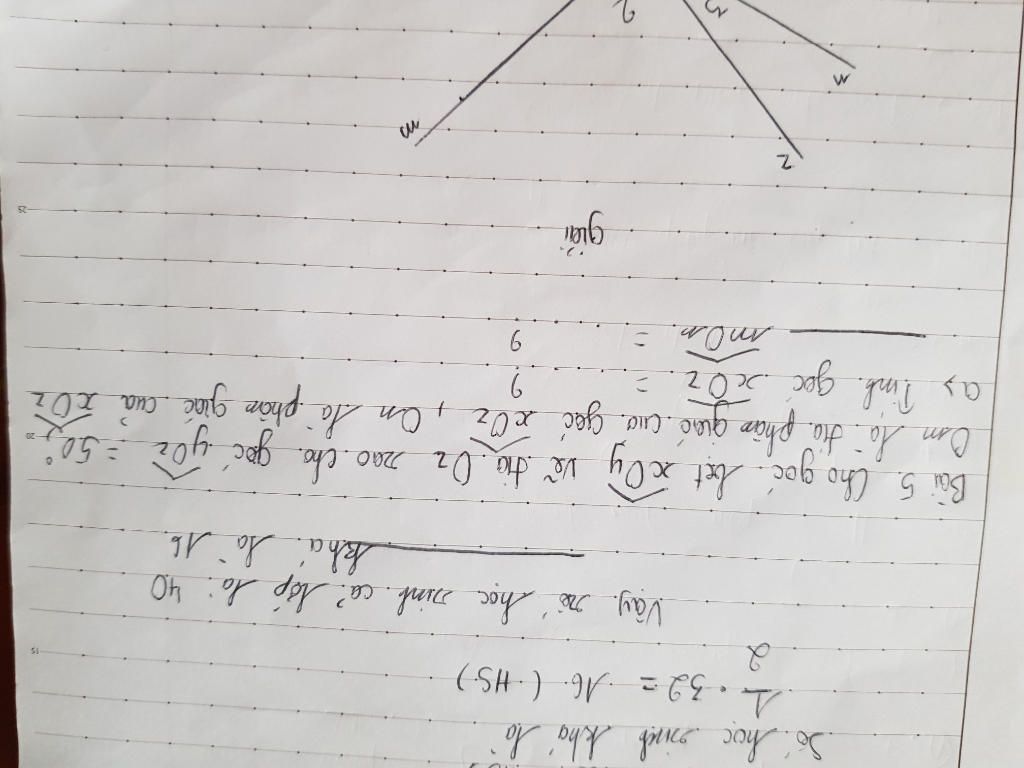 Số học sinh khá là
1/2 . 32 = 16 (HS)
15
Vậy số học sinh cả lớp là 40
khá là 16
Bài 5 Cho góc bẹt xOy vẽ tia Oz sao cho góc yOz = 50°
20
Om là tia phân giác của góc xOz, On là phân giác của xOz
a> Tính góc xOz = ?
mOn = ?
giải
25
m z n
2 3